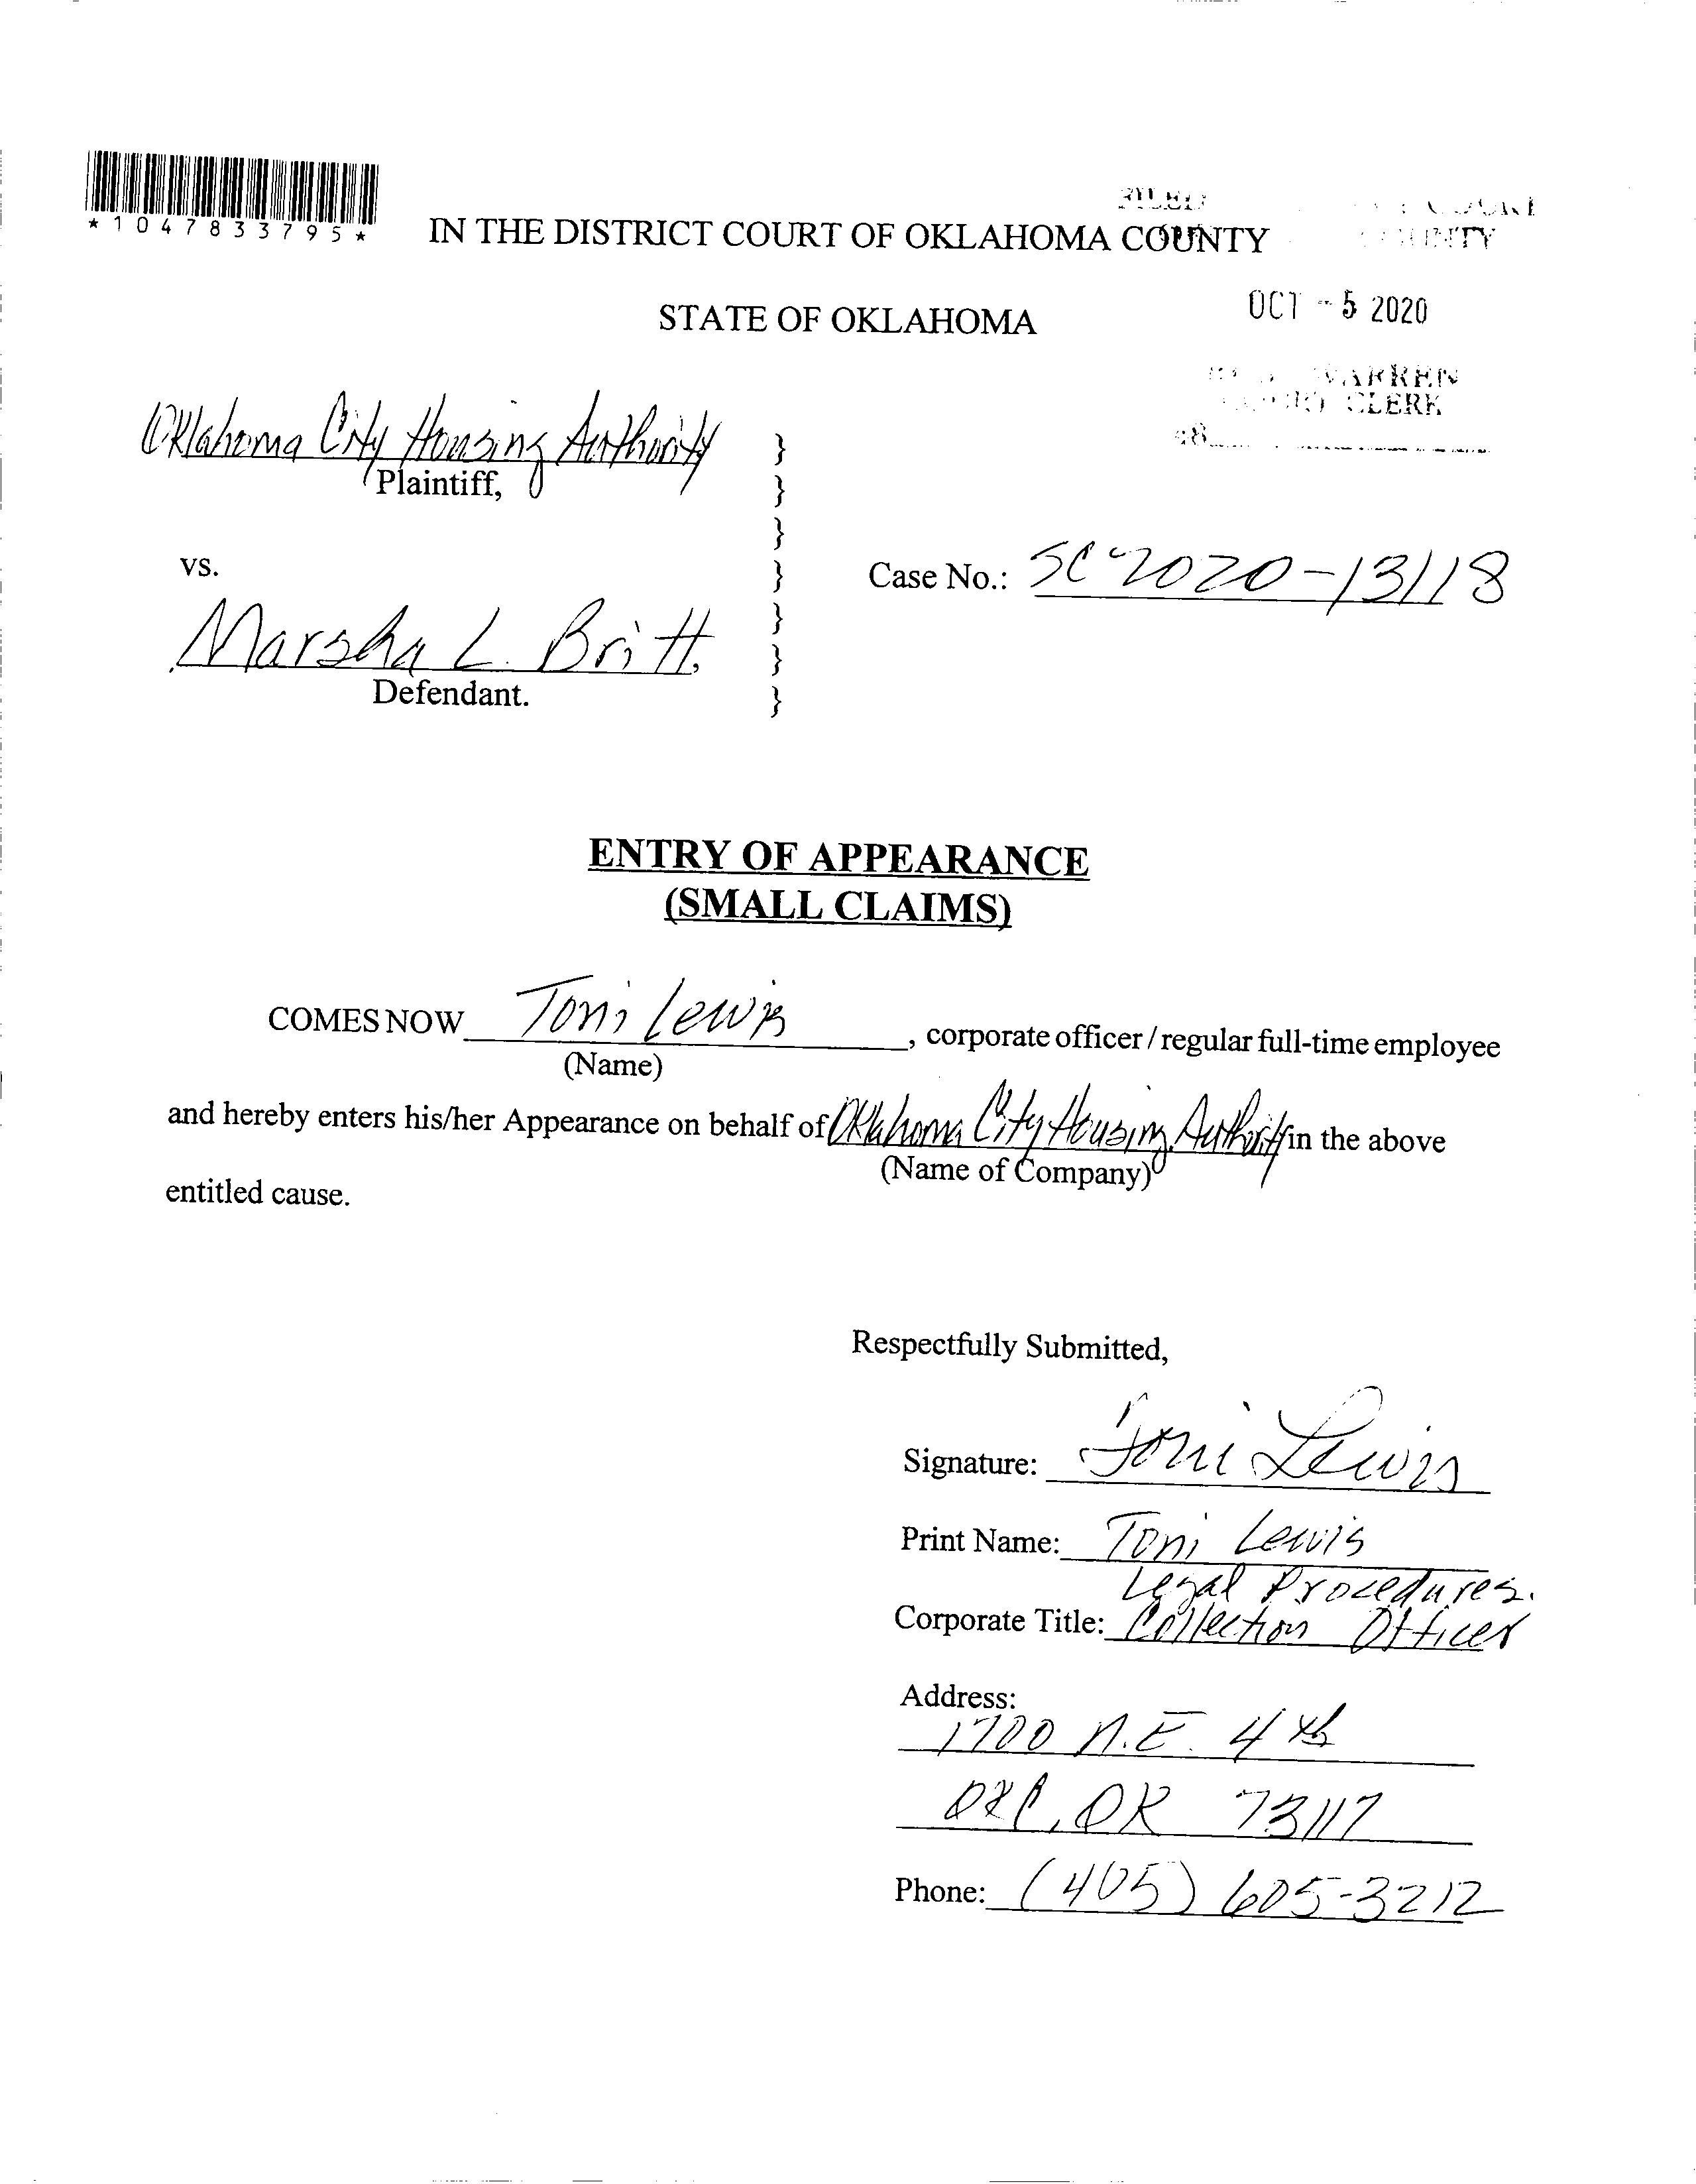 FILED COURT
*1047833795*
IN THE DISTRICT COURT OF OKLAHOMA COUNTY
STATE OF OKLAHOMA
OCT - 5 2020
WARREN
CLERK
Oklahoma City Housing Authority }
Plaintiff, }
}
vs. }
Case No.: SC-2020-13118
}
Marsha L. Britt, }
Defendant. }
ENTRY OF APPEARANCE
(SMALL CLAIMS)
COMES NOW Toni Lewis, corporate officer / regular full-time employee
(Name)
and hereby enters his/her Appearance on behalf of Oklahoma City Housing Authority in the above
(Name of Company)
entitled cause.
Respectfully Submitted,
Signature: Toni Lewis
Print Name: Toni Lewis
Legal Procedures.
Corporate Title: Collection Officer
Address:
1700 N.E. 4th
OKC, OK 73117
Phone: (405) 605-3212